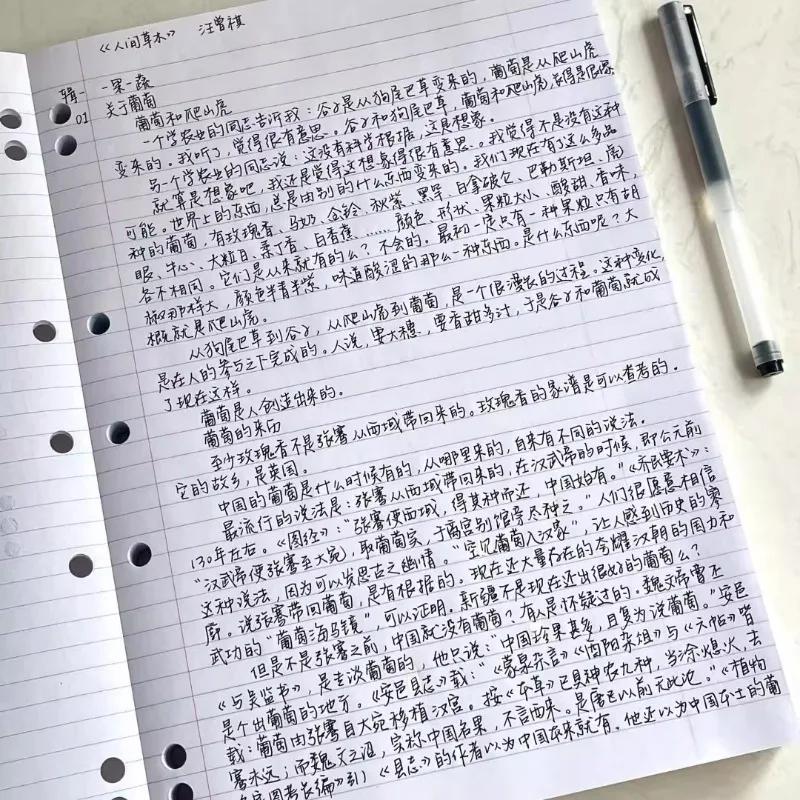 《人间草木》 汪曾祺
辑一 一果一蔬
01 关于葡萄
葡萄和爬山虎
一个学农业的同志告诉我：谷子是从狗尾巴草变来的，葡萄是从爬山虎
变来的。我听了，觉得很有意思。谷子和狗尾巴草，葡萄和爬山虎，长得是很像
另一个学农业的同志说：这没有科学根据，这是想象。
就算是想象吧，我还是觉得这想象得很有意思。我觉得不是没有这种
可能。世界上的东西，总是由别的什么东西变来的。我们现在有了这么多品
种的葡萄，有玫瑰香、马奶、金铃、秋紫、黑罕、白拿破仑、巴勒斯坦、虎
眼、牛心、大粒白、柔丁香、白香蕉……颜色、形状、果粒大小、酸甜、香味，
各不相同。它们是从来就有的么？不会的。最初一定只有一种果粒只有胡
椒那样大，颜色半青半紫，味道酸涩的那么一种东西。是什么东西呢？大
概就是爬山虎。
从狗尾巴草到谷子，从爬山虎到葡萄，是一个很漫长的过程。这种变化，
是在人的参与之下完成的。人说，要大穗，要香甜多汁，于是谷子和葡萄就成
了现在这样。
葡萄是人创造出来的。
葡萄的来历
至少玫瑰香不是张骞从西域带回来的。玫瑰香的家谱是可以查考的。
它的故乡，是英国。
中国的葡萄是什么时候有的，从哪里来的，自来有不同的说法。
最流行的说法是：张骞从西域带回来的，在汉武帝的时候，即公元前
130年左右。《图经》："张骞使西域，得其种而还，中国始有。"《齐民要术》：
"汉武帝使张骞至大宛，取葡萄实，于离宫别馆旁尽种之。"人们很愿意相信
这种说法，因为可以发思古之幽情。"空见葡萄入汉家"，让人感到历史的寥
廓。说张骞带回葡萄，是有根据的。现在还大量存在的夸耀汉朝的国力和
武功的"葡萄海马镜"，可以证明。新疆不是现在还出很好的葡萄么？
但是不是张骞之前，中国就没有葡萄？有人是怀疑过的。魏文帝曹丕
《与吴监书》，是专谈葡萄的，他只说："中国珍果甚多，且复为说葡萄。"安邑
是个出葡萄的地方。《安邑县志》载："《蒙泉杂言》《酉阳杂俎》与《六帖》皆
载：葡萄由张骞自大宛移植汉宫。按《本草》已具神农九种，当涂熄火，去
骞未远；而魏文之诏，实称中国名果，不言西来。是唐已以前无此论。"《植物
名实图考长编》引《县志》的作者以为中国本来就有。他还以为中国本土的葡